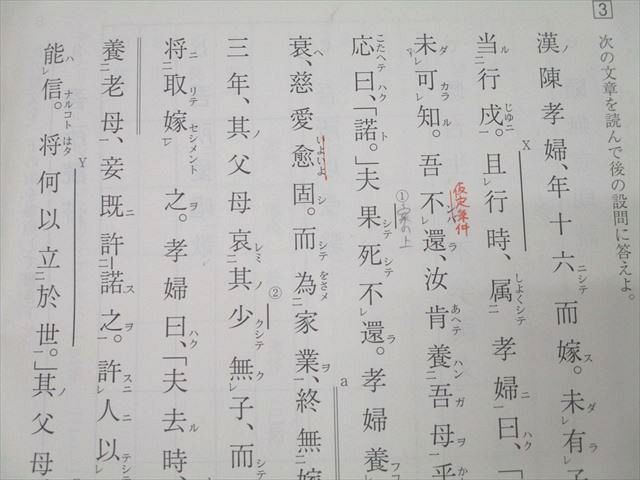 3
次の文章を読んで後の設問に答えよ。
漢ノ陳孝婦、年十六ニシテ而嫁ス。未ダレ有ラ子
当ル二行戍じゆニ。且レ行時、属しよくシテ二孝婦ニ一曰ハク、「
X
未ダレ可カラレ知ル。吾不レ還ラ、汝肯あへテ養ハン二吾ガ母ヲ一乎
仮定条件
応こたヘテ曰ハク、「諾ト。」夫果シテ死シテ不レ還ラ。孝婦養フコ
①
衰へ、慈愛愈いよいよ固シ。而シテ為をさメ二家業ヲ一、終無嫁
a
三年、其ノ父母哀レミ二其ノ少クシテ無ク一レ子、而シテ
②
将ニ取リテ嫁セシメント一レ之ヲ。孝婦曰ハク、「夫去ル時、
養二老母一、妾既ニ許二諾ス之ヲ一。許スニレ人ニ以テシテ
能ハレ信ナルコト。将はタ何以立二於世一。」其ノ父母
Y